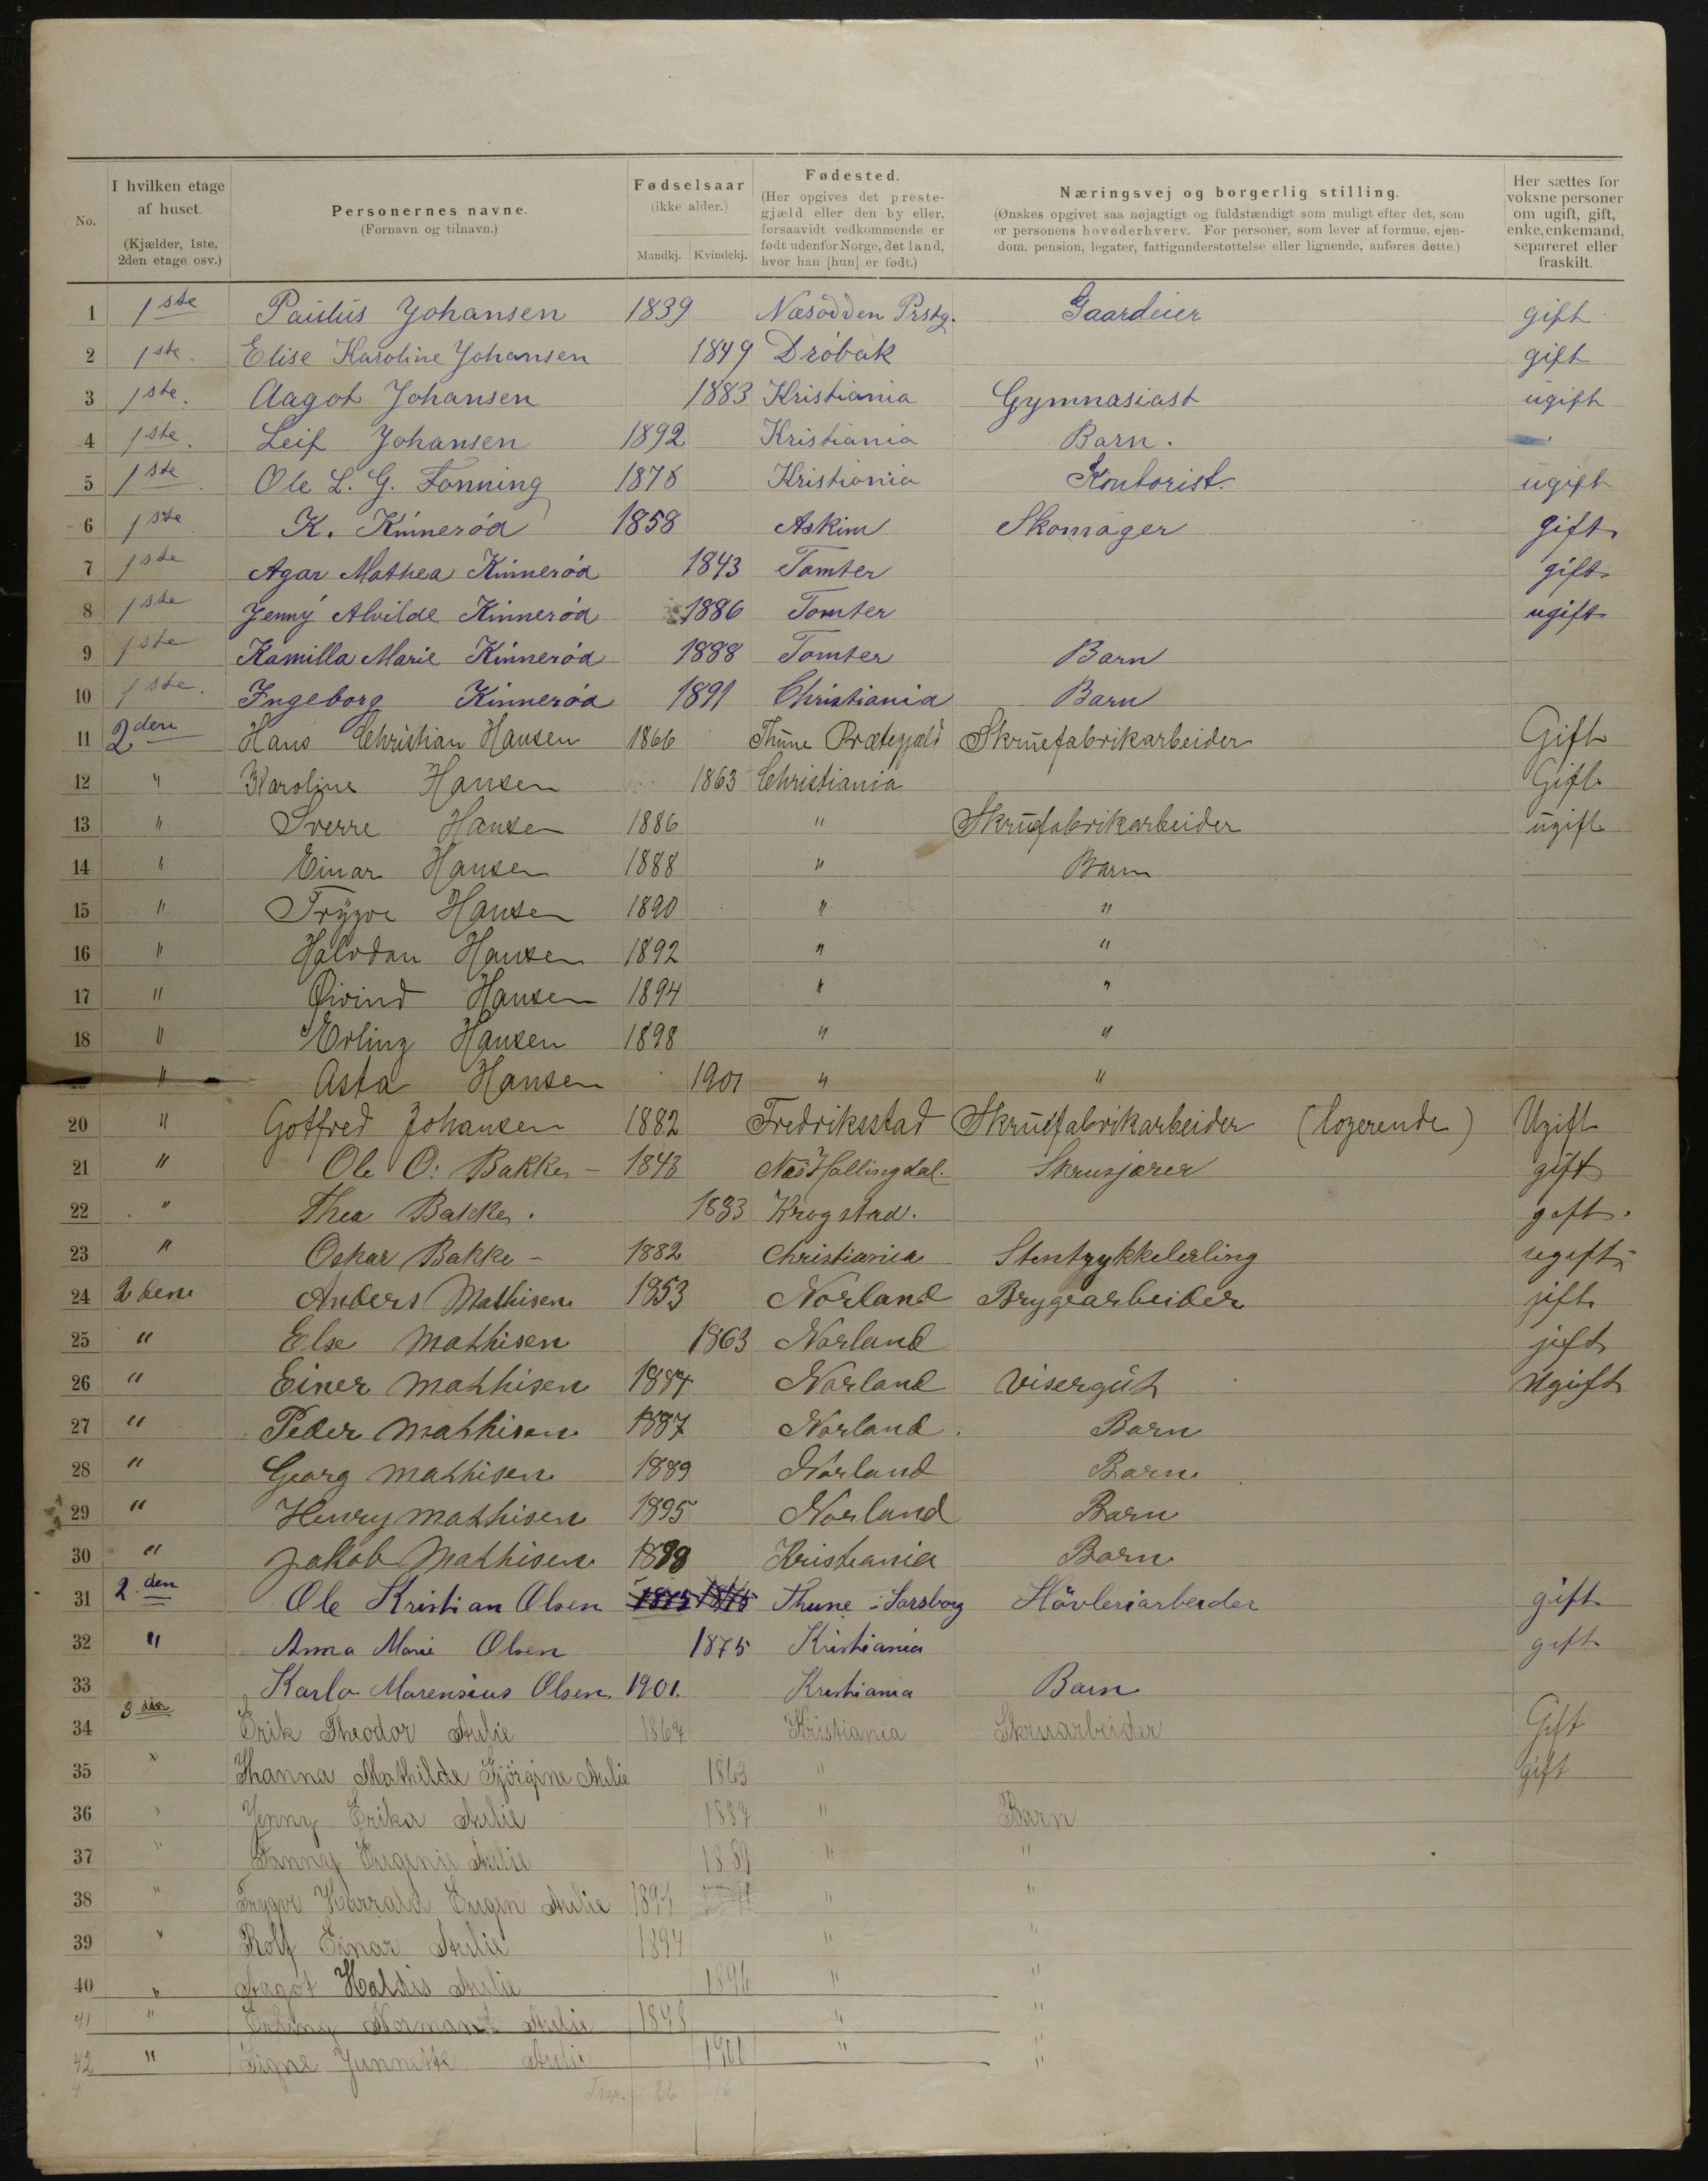 No. | I hvilken etage af huset. (Kjælder, 1ste, 2den etage osv.) | Personernes navne. (Fornavn og tilnavn.) | Fødselsaar (ikke alder.) Mandkj. Kvindekj. | Fødested. (Her opgives det prestegjæld eller den by eller, forsaavidt vedkommende er født udenfor Norge, det land, hvor han [hun] er født.) | Næringsvej og borgerlig stilling. (Ønskes opgivet saa nøjagtigt og fuldstændigt som muligt efter det, som er personens hovederhverv. For personer, som lever af formue, ejendom, pension, legater, fattigunderstøttelse eller lignende, anføres dette.) | Her sættes for voksne personer om ugift, gift, enke, enkemand, separeret eller fraskilt.
1 1ste Paulus Johansen 1839 Næsodden Prstg. Gaardeier gift
2 1ste. Elise Karoline Johansen 1849 Dröbak gift
3 1ste. Aagot Johansen 1883 Kristiania Gymnasiast ugift
4 1ste. Leif Johansen 1892 Kristiania Barn.
5 1ste. Ole L. G. Fonning Kristiania Kontorist. ugift
6 1ste K. Kinnerød 1858 Askim Skomager gift
7 1ste Agar Mathea Kinnerød 1843 Tomter gift
8 1ste Jenny Alvilde Kinnerød 1886 Tomter ugift
9 1ste Kamilla Marie Kinnerød 1888 Tomter Barn
10 1ste. Ingeborg Kinnerød 1891 Christiania Barn
11 2den Hans Christian Hansen 1866 Thune Skruefabrikarbeider Gift
12 " Karoline Hansen 1863 Christiania Gift
13 " Sverre Hansen 1886 " Skruefabrikarbeider ugift
14 " Einar Hansen 1888 " Barn
15 " Trygve Hansen 1890 " "
16 " Halvdan Hansen 1892 " "
17 " Øivind Hansen 1894 " "
18 " Erling Hansen 1898 " "
" Asta Hansen 1901 " "
20 " Gotfred Johansen 1882 Fredriksstad Skruefabrikarbeider (logerende) Ugift
21 " Ole O. Bakke - 1843 Næs Hallingdal. gift
22 " Thea Bakke. Krogstad. gift.
23 " Oskar Bakke - 1882 Christiania Stentrykkelerling ugift
24 2den Anders Mathisen 1853 Norland Brygearbeider jift
25 " Else Mathisen 1863 Norland jift
26 " Einer Mathisen Norland Visergut Ugift
27 " Peder Mathisen 1887 Norland. Barn
28 " Georg Mathisen 1889 Norland Barn
29 " Henry Mathisen 1895 Norland Barn
30 " Jakob Mathisen 1898 Kristiania Barn
31 2.den Ole Kristian Olsen 1875 1875 Thune i Sarsborg Hövleriarbeider gift
32 " Anna Marie Olsen 1875 Kristiania gift
33 Karlo Marensius Olsen. 1901. Kristiania Barn
34 3die Erik Theodor Aulie 1867 Kristiania Skruarbeider Gift
35 " Hanna Mathilde Gjörgine Aulie 1863 " gift
36 " Jenny Erika Aulie 1887 " Barn
37 " Fanny Eugenie Aulie 1889 " "
38 " Trygve Harrald Eugen Aulie 1891 " "
39 " Rolf Einar Aulie 1894 " "
40 " Aagot Haldis Aulie 1896 " "
41 " Erling Normann Aulie 1898 " "
42 " Signe Jannette Aulie 1901 " "
26 16